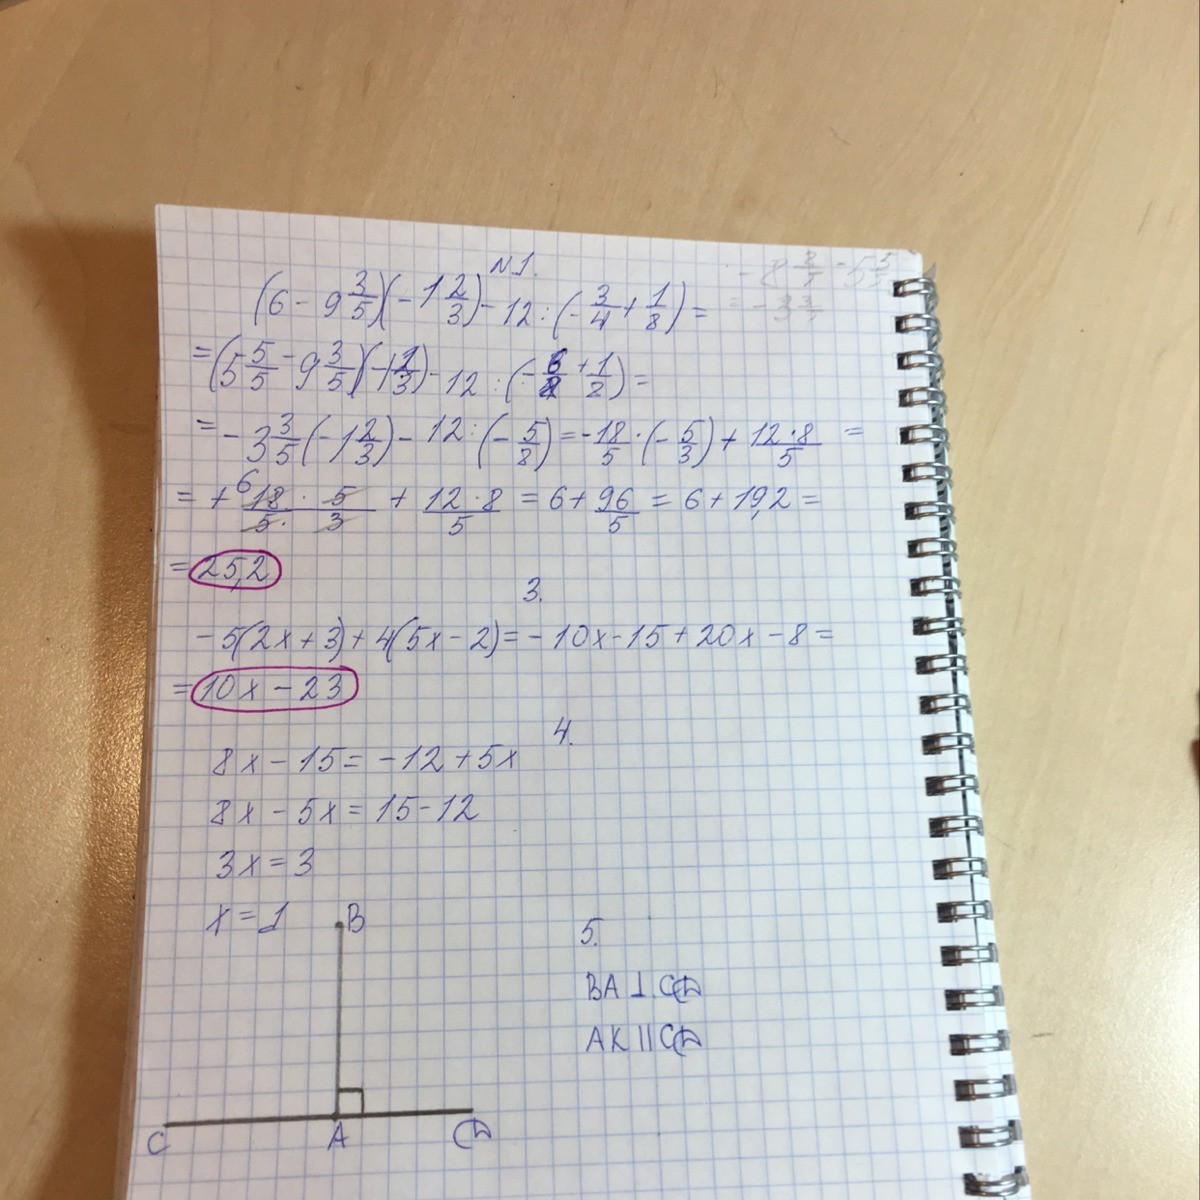 N1.
(6 - 9 3/5)(-1 2/3) - 12 : (-3/4 + 1/8) =
= (5 5/5 - 9 3/5)(-1 2/3) - 12 : (-6/8 + 1/2) =
= -3 3/5 (-1 2/3) - 12 : (-5/8) = -18/5 · (-5/3) + 12·8/5 =
= + 6 18 · 5/5 · 3 + 12·8/5 = 6 + 96/5 = 6 + 19,2 =
= 25,2
3.
-5(2x+3)+4(5x-2)=-10x-15+20x-8=
= 10x - 23
4.
8x - 15 = -12 + 5x
8x - 5x = 15 - 12
3x = 3
x = 1
B
5.
BA ⊥ CD
AK || CD
C A D